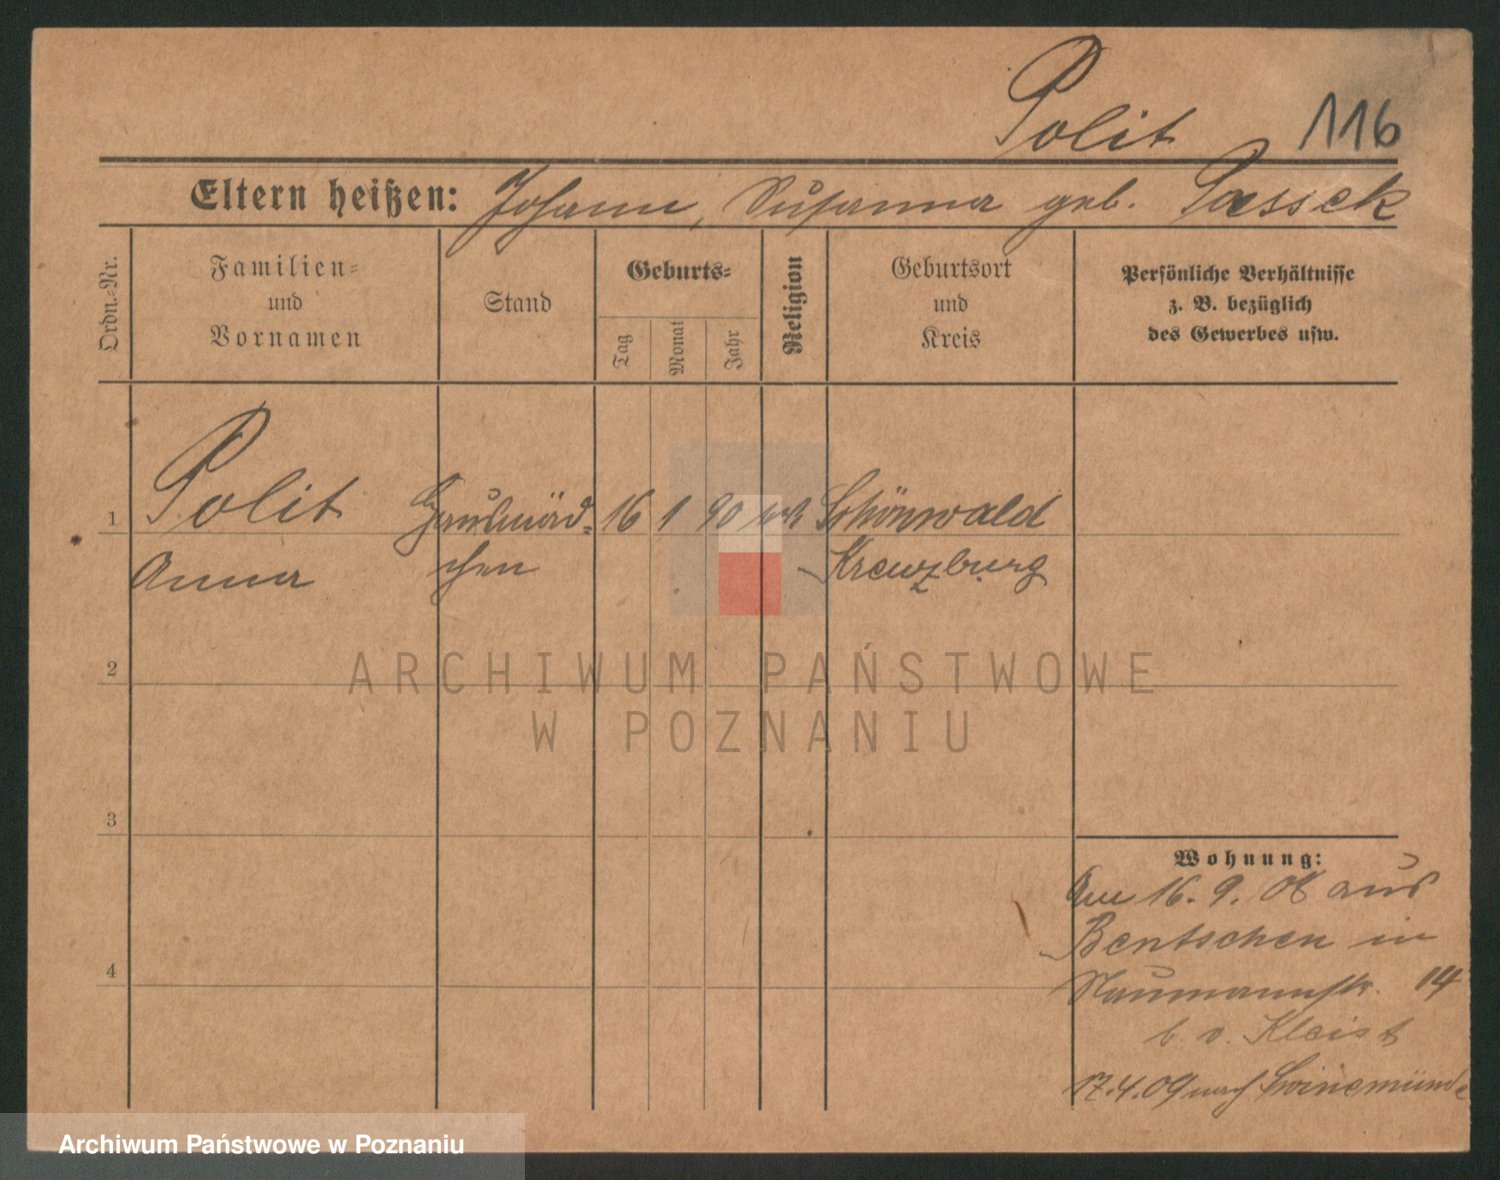 Polit 116
Eltern heißen: Johann, Susanna geb. Passek
Ordn.-Nr.
Familien-
und
Vornamen
Stand
Geburts-
Tag
Monat
Jahr
Religion
Geburtsort
und
Kreis
Persönliche Verhältnisse
z. B. bezüglich
des Gewerbes usw.
1 Polit Hausmäd- 16 1 90 kath Schönwald
Anna chen Kreuzburg
2
3
4
Wohnung:
Am 16. 9. 08 aus
Bentschen in
Naumannstr. 14
b. v. Kleist
17.4.09 nach Swinemünde
ARCHIWUM PAŃSTWOWE
W POZNANIU
Archiwum Państwowe w Poznaniu